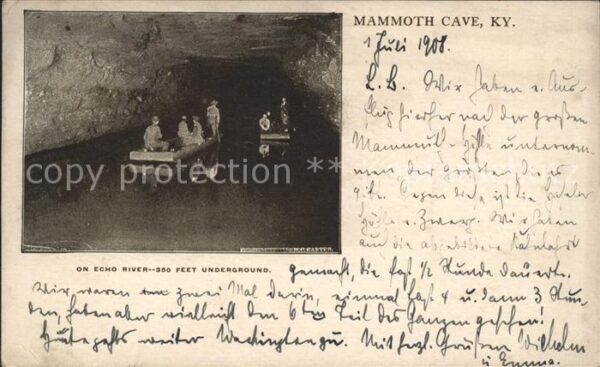 MAMMOTH CAVE, KY.
1 Juli 1908.
L. B. Wir haben e. Aus-
flug hierher nach der großen
Mammuth-Höhle unternom-
men, der größten die es
gibt. Gegen diese ist die
Höhle e. Zwerg. Wir haben
auch die abgebildete Kahnfahrt
gemacht, die fast 1/2 Stunde dauerte.
Wir waren zwei Mal darin, einmal fast 4 u. dann 3 Stun-
den, haben aber vielleicht den 6ten Teil des Ganzen gesehen!
Heute gehts weiter Washington zu. Mit herzl. Grüßen Wilhelm
u. Emma.
copy protection
ON ECHO RIVER--360 FEET UNDERGROUND.